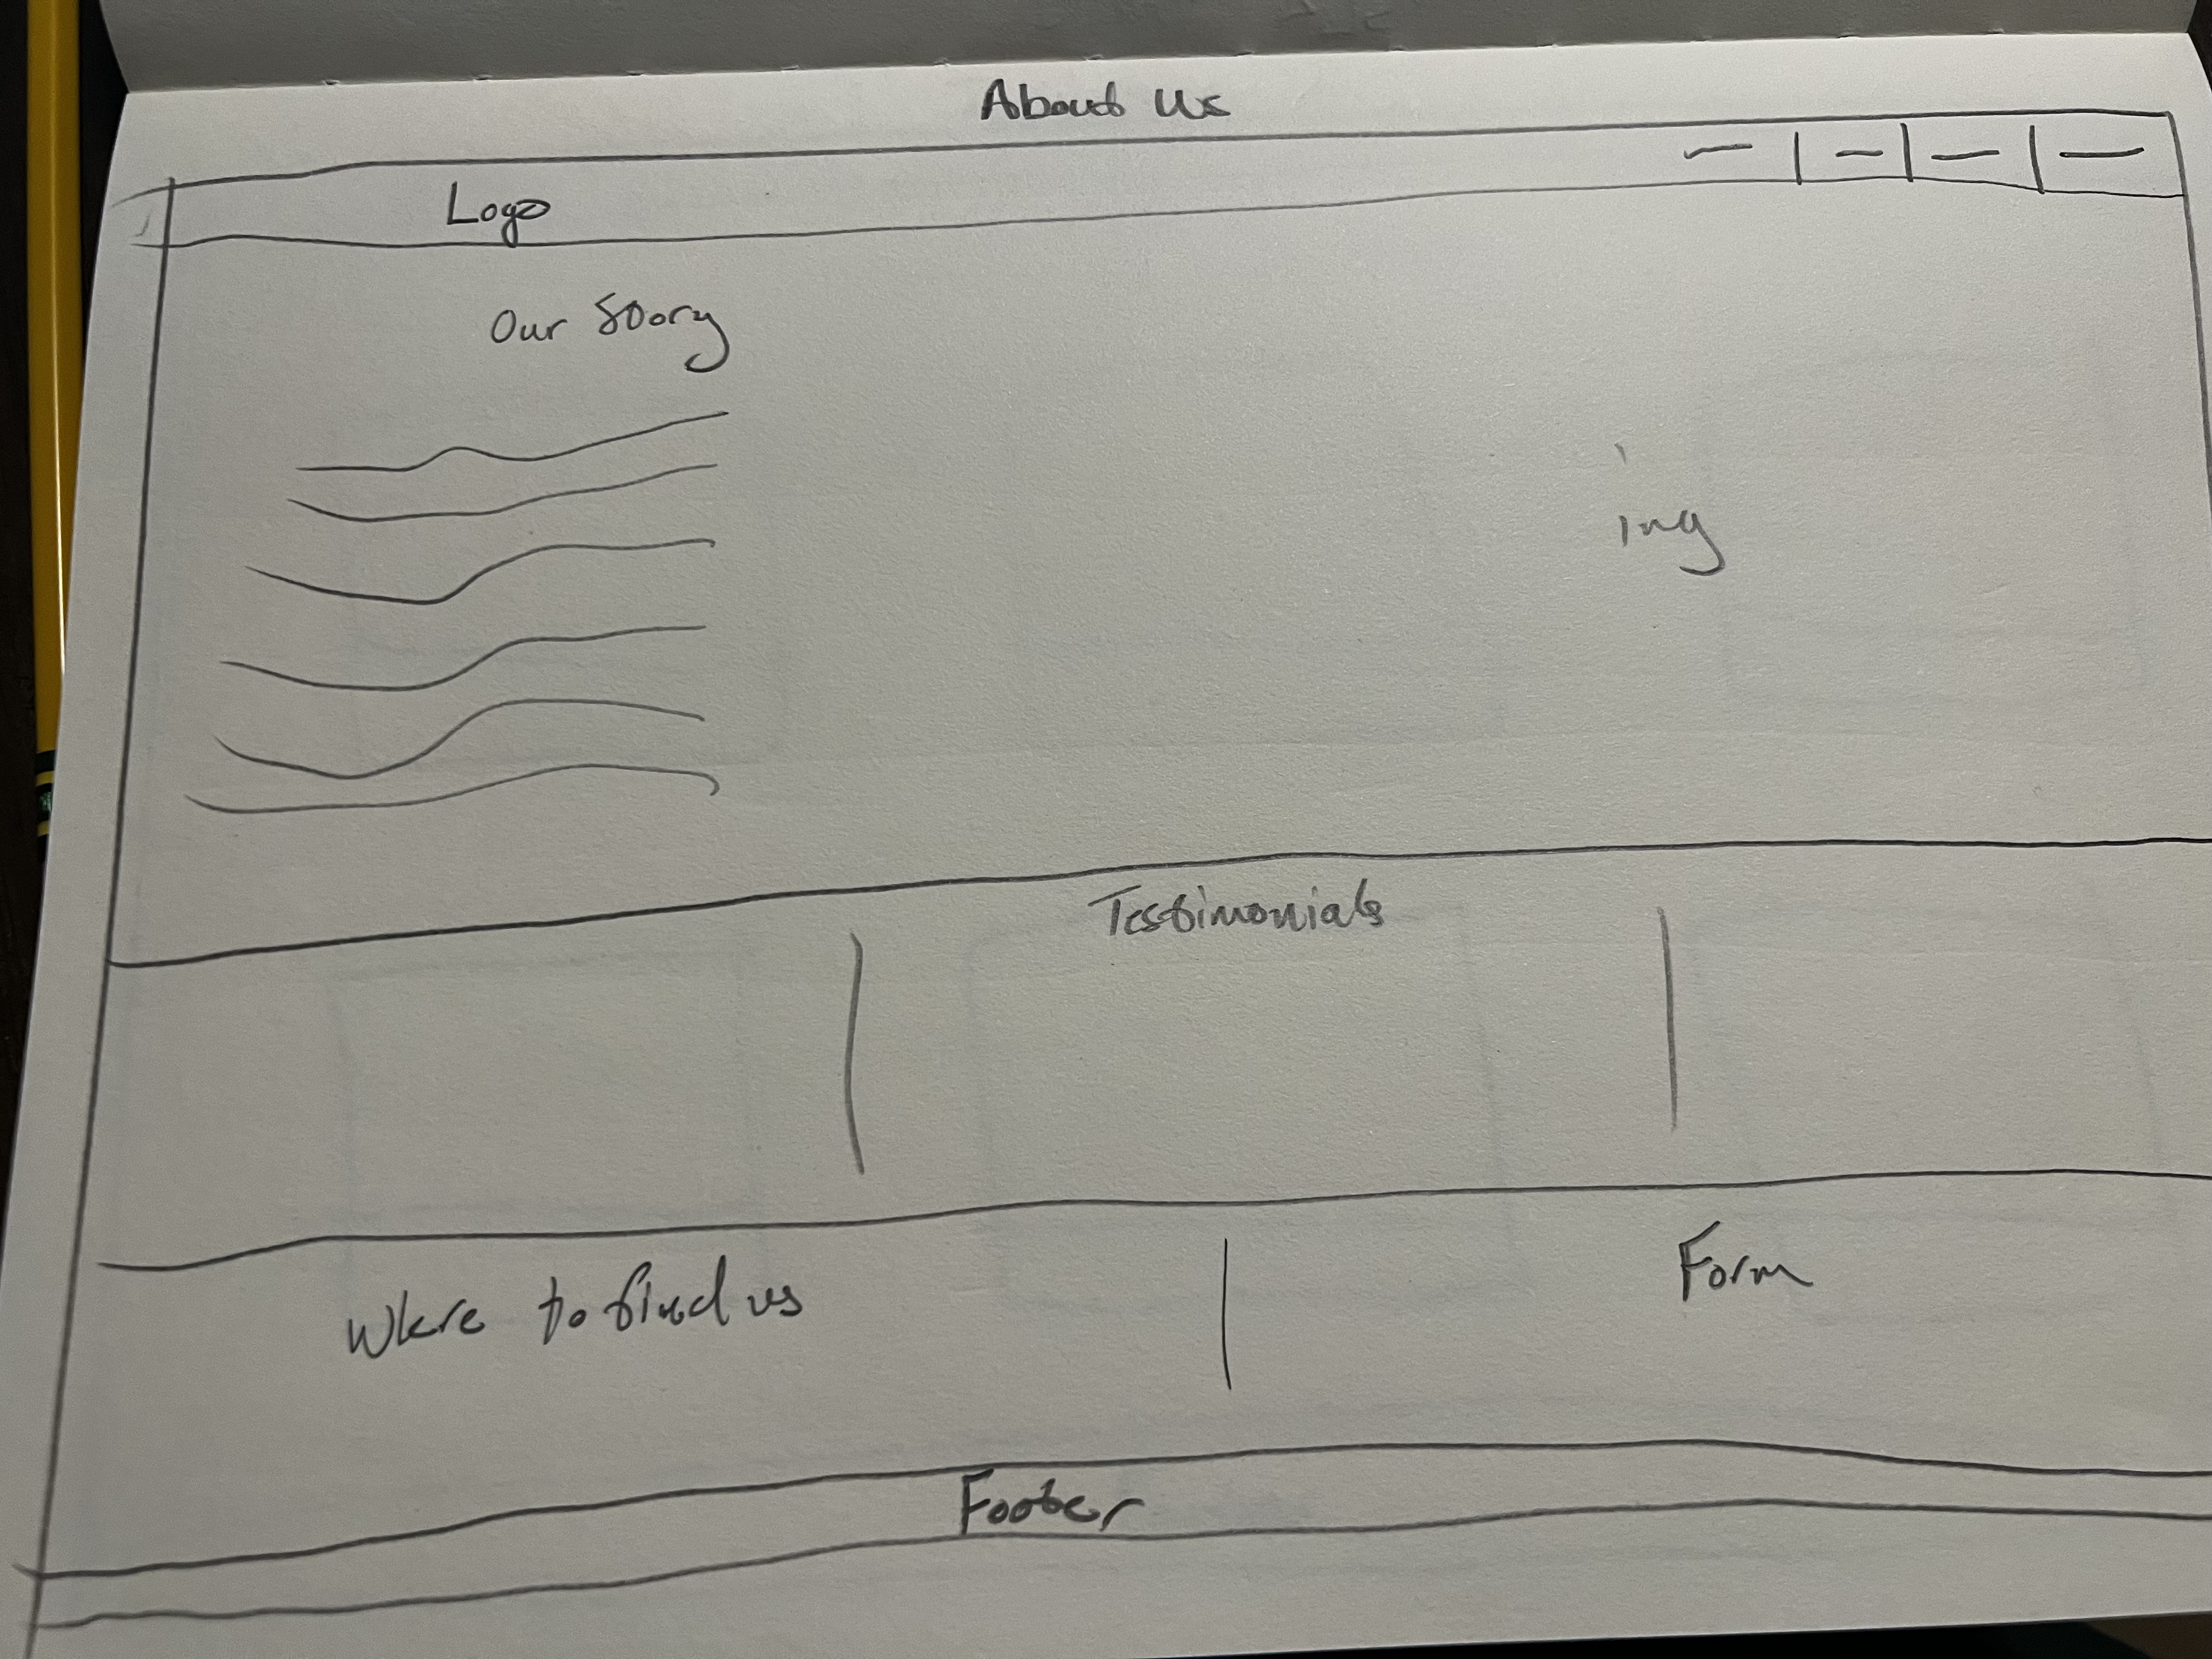 About Us
Logo
Our Story
ing
Testimonials
Where to find us
Form
Footer